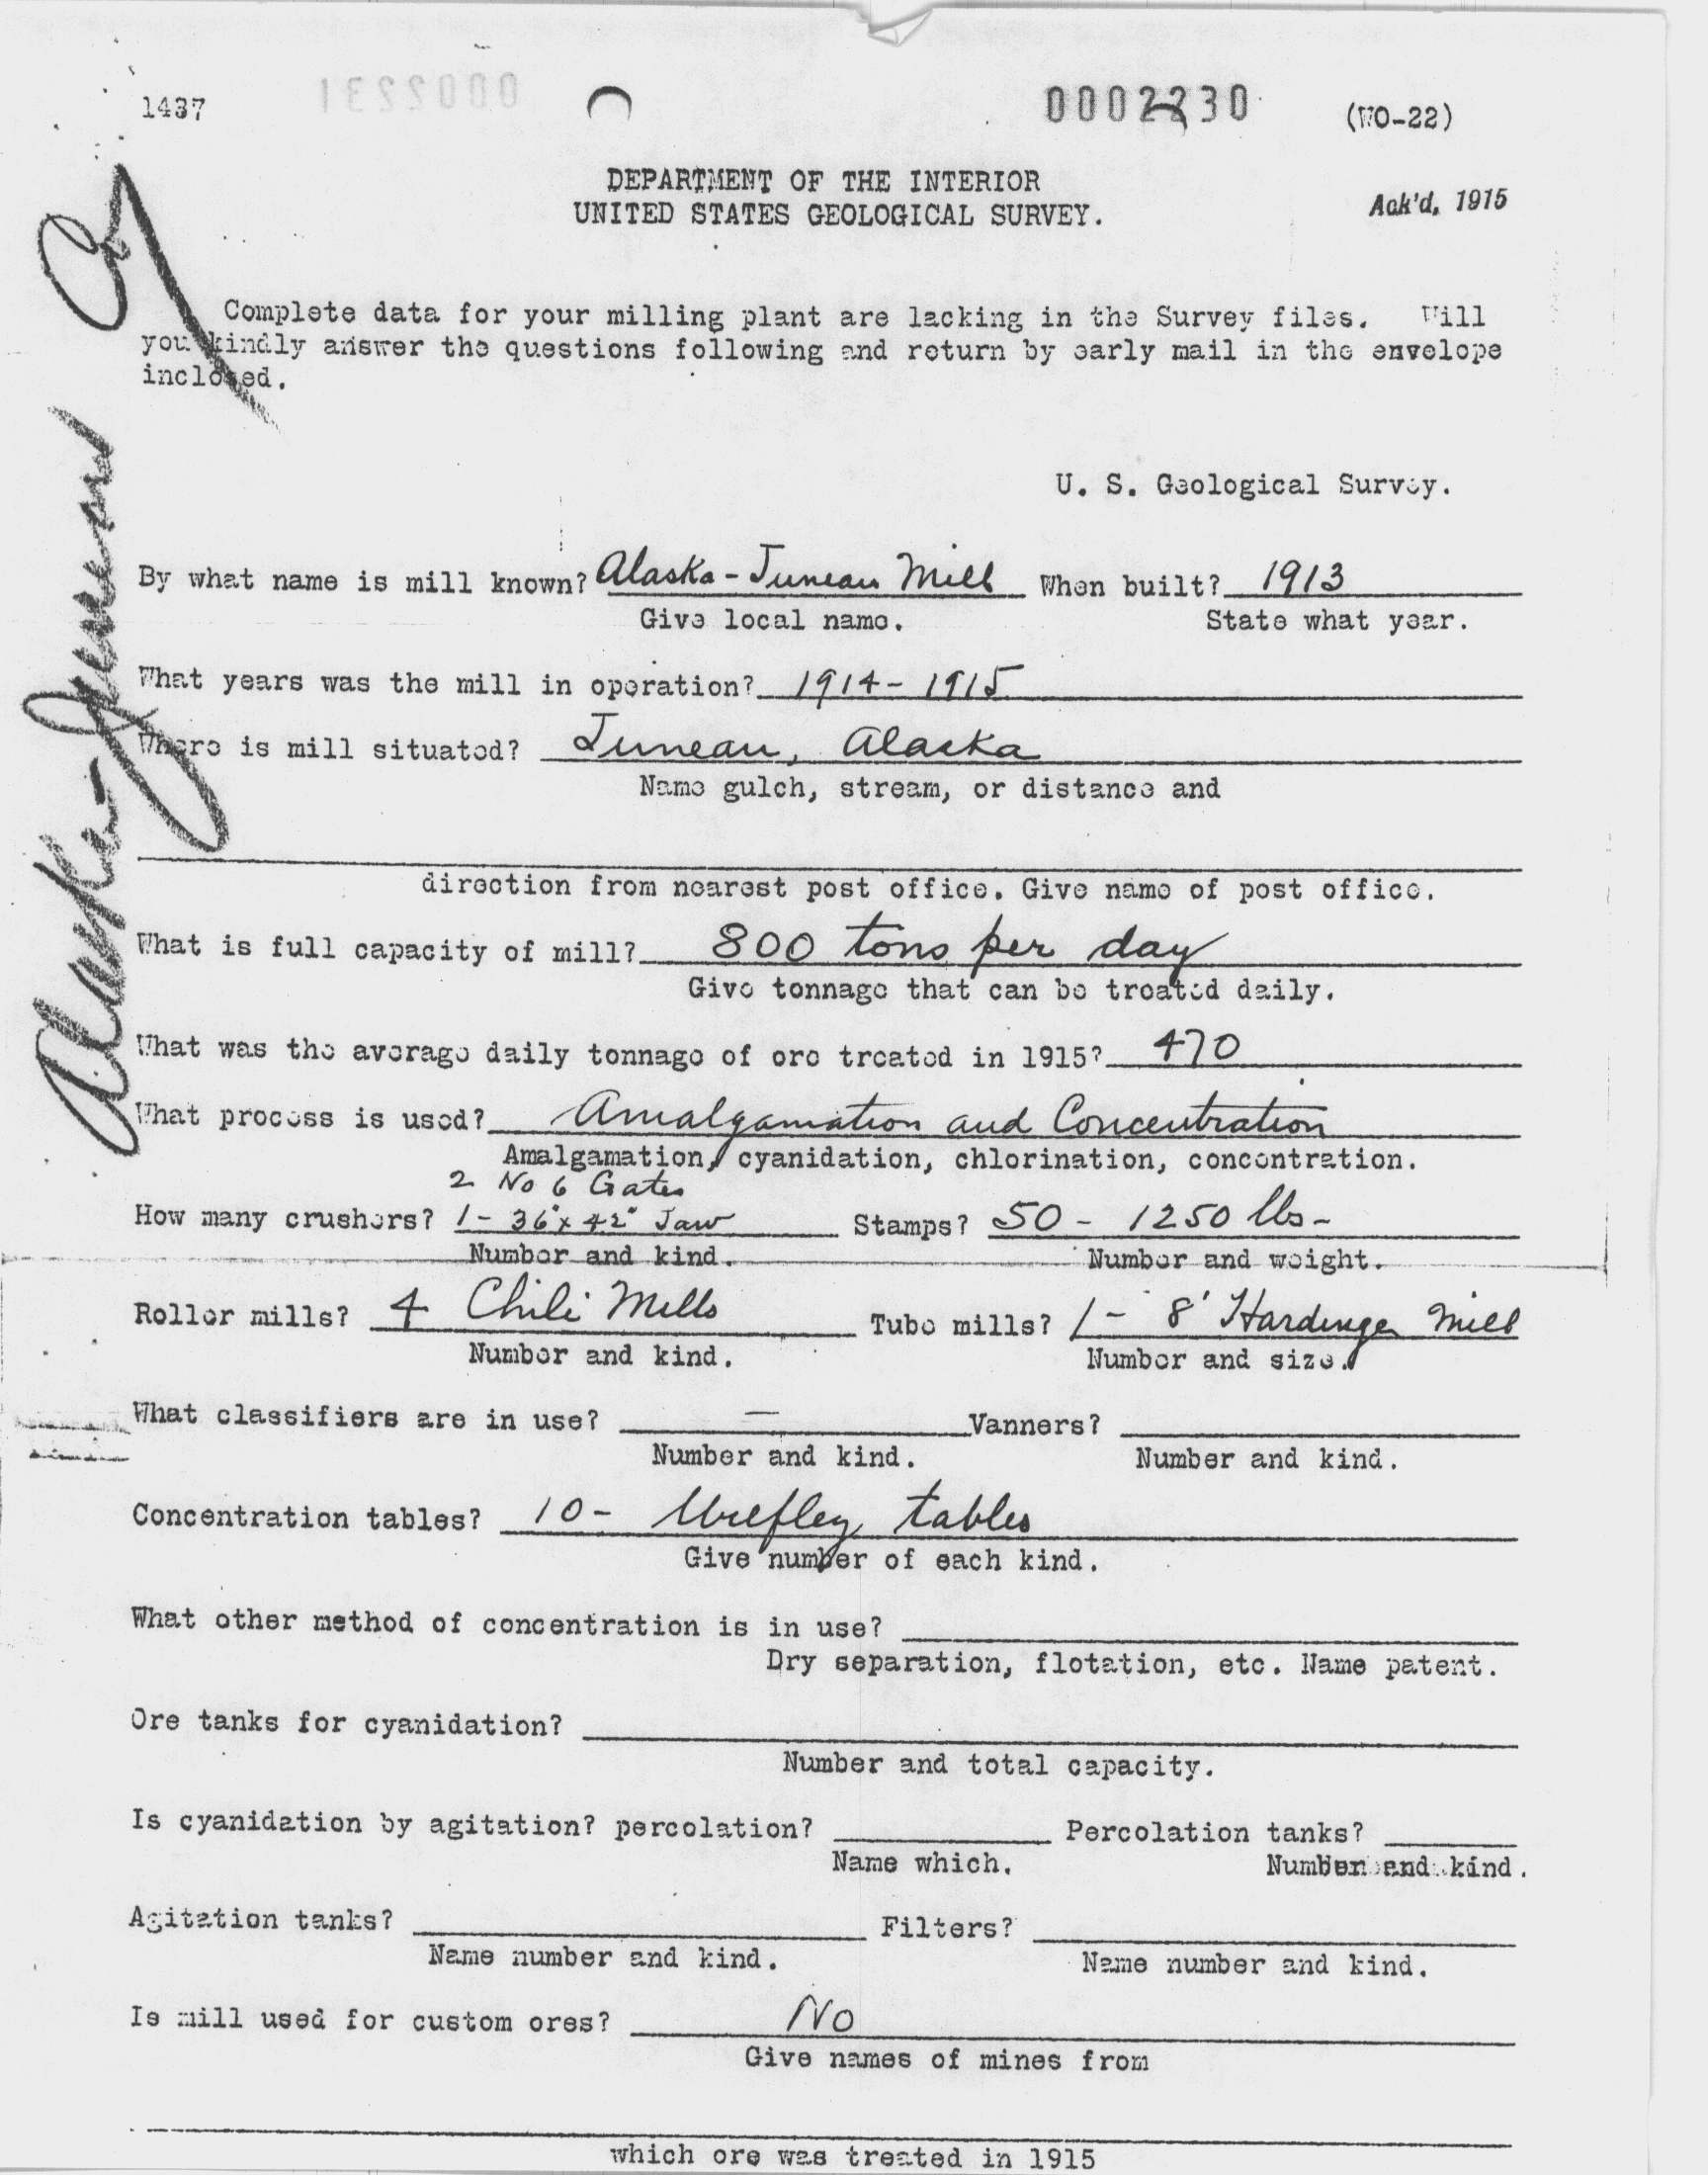 1437
0002231
0002230
(WO-22)
DEPARTMENT OF THE INTERIOR
UNITED STATES GEOLOGICAL SURVEY.
Ack'd, 1915
Alaska-Juneau Co
Complete data for your milling plant are lacking in the Survey files. Will
you kindly answer the questions following and return by early mail in the envelope
inclosed.
U. S. Geological Survey.
By what name is mill known? Alaska-Juneau Mill When built? 1913
Give local name. State what year.
What years was the mill in operation? 1914-1915
Where is mill situated? Juneau, Alaska
Name gulch, stream, or distance and
direction from nearest post office. Give name of post office.
What is full capacity of mill? 800 tons per day
Give tonnage that can be treated daily.
What was the average daily tonnage of ore treated in 1915? 470
What process is used? Amalgamation and Concentration
Amalgamation, cyanidation, chlorination, concentration.
2 No 6 Gates
How many crushers? 1- 36"x 42" Jaw Stamps? 50 - 1250 lbs-
Number and kind. Number and weight.
Roller mills? 4 Chili Mills Tube mills? 1- 8' Hardinge Mill
Number and kind. Number and size.
What classifiers are in use? — Vanners?
Number and kind. Number and kind.
Concentration tables? 10- Wilfley tables
Give number of each kind.
What other method of concentration is in use?
Dry separation, flotation, etc. Name patent.
Ore tanks for cyanidation?
Number and total capacity.
Is cyanidation by agitation? percolation? Percolation tanks?
Name which. Number and kind.
Agitation tanks? Filters?
Name number and kind. Name number and kind.
Is mill used for custom ores? No
Give names of mines from
which ore was treated in 1915